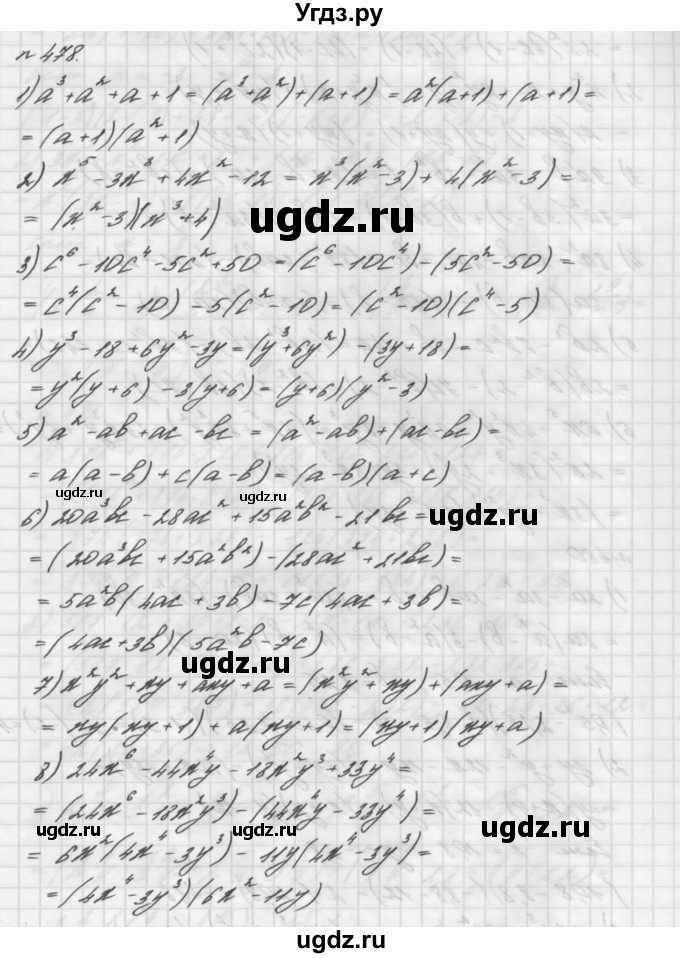 Угдз.ру
n 478.
1) a³+a²+a+1=(a³+a²)+(a+1) = a²(a+1)+(a+1)=
=(a+1)(a²+1)
2) x⁵-3x³+4x²-12 = x³(x²-3)+4(x²-3)=
=(x²-3)(x³+4)
ugdz.ru
3) c⁶-10c⁴-5c²+50=(c⁶-10c⁴)-(5c²-50)=
=c⁴(c²-10)-5(c²-10)=(c²-10)(c⁴-5)
4) y³-18+6y²-3y=(y³+6y²)-(3y+18)=
=y²(y+6)-3(y+6)=(y+6)(y²-3)
5) a²-ab+ac-bc=(a²-ab)+(ac-bc)=
=a(a-b)+c(a-b)=(a-b)(a+c)
ugdz.ru ugdz.ru
6) 20a³bc-28ac²+15a²b²-21bc=
ugdz.ru
=(20a³bc+15a²b²)-(28ac²+21bc)=
=5a²b(4ac+3b)-7c(4ac+3b)=
=(4ac+3b)(5a²b-7c)
ugdz.ru
7) x²y²+xy+axy+a=(x²y²+xy)+(axy+a)=
=xy(xy+1)+a(xy+1)=(xy+1)(xy+a)
8) 24x⁶-44x⁴y-18x²y³+33y⁴=
=(24x⁶-18x²y³)-(44x⁴y-33y⁴)=
ugdz.ru ugdz.ru ugdz.ru
=6x²(4x⁴-3y³)-11y(4x⁴-3y³)=
=(4x⁴-3y³)(6x²-11y)
ugdz.ru